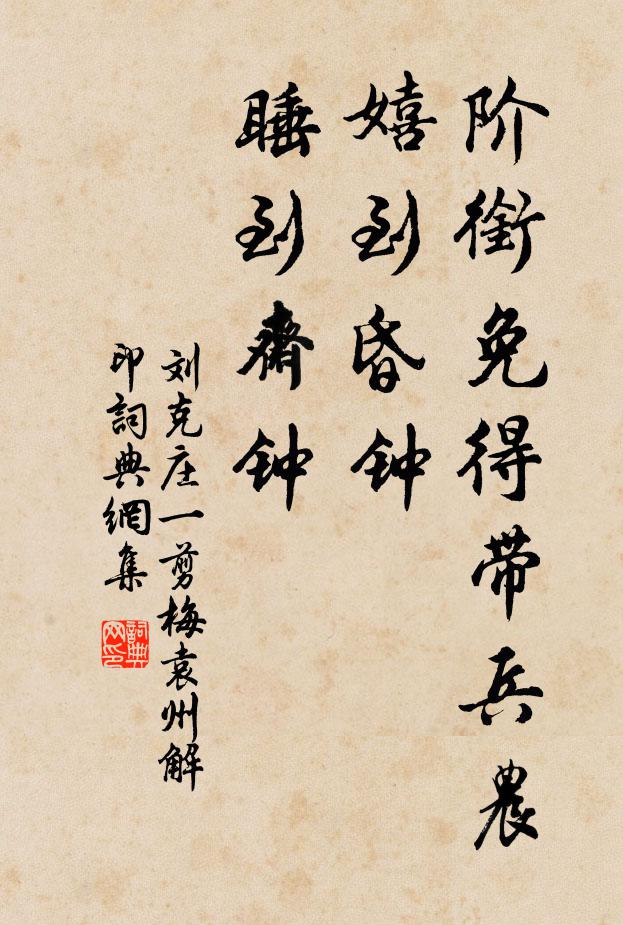 阶衔免得带兵农
嬉到昏钟
睡到斋钟
刘克庄一剪梅袁州解
印詞典網集
詞典网印